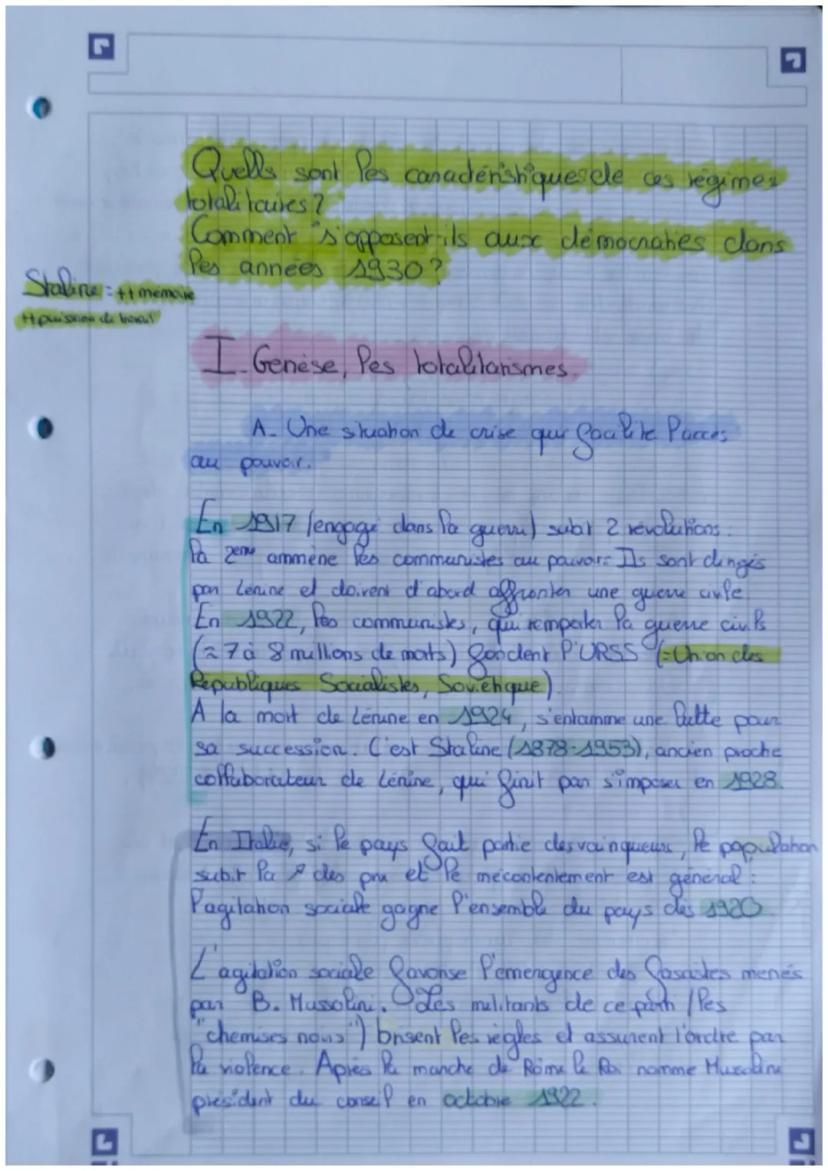 Quells sont les caractéristiques de ces régimes
totalitaires ?
Comment s'opposent ils aux démocraties dans
les années 1930 ?
Staline = ++ memoire
++ puission de travail
I. Genèse, les totalitarismes.
A. Une situation de crise qui facilite l'accès
au pouvoir.
En 1917 (engagé dans la guerre) subit 2 révolutions :
la 2eme ammène les communistes au pouvoir. Ils sont dirigés
par Lénine et doivent d'abord affronter une guerre civile
En 1922, les communistes, qui remporter la guerre civile
(≈ 7 à 8 millions de morts) fondent l'URSS (= Union des
Républiques Socialistes, Soviétique)
A la mort de Lénine en 1924, s'entamme une lutte pour
sa succession. C'est Staline (1878-1953), ancien proche
collaborateur de Lénine, qui finit par s'imposer en 1928.
En Italie, si le pays fait partie des vainqueurs, le population
subit la ↗ des prix et le mécontentement est général :
l'agitation sociale gagne l'ensemble du pays dès 1920
L'agitation sociale favorise l'émergence des fascistes menés
par B. Mussolini. Les militants de ce parti (les
"chemises noires") brisent les règles et assurent l'ordre par
la violence. Après la marche de Rome le Roi nomme Mussolini
président du conseil en octobre 1922.